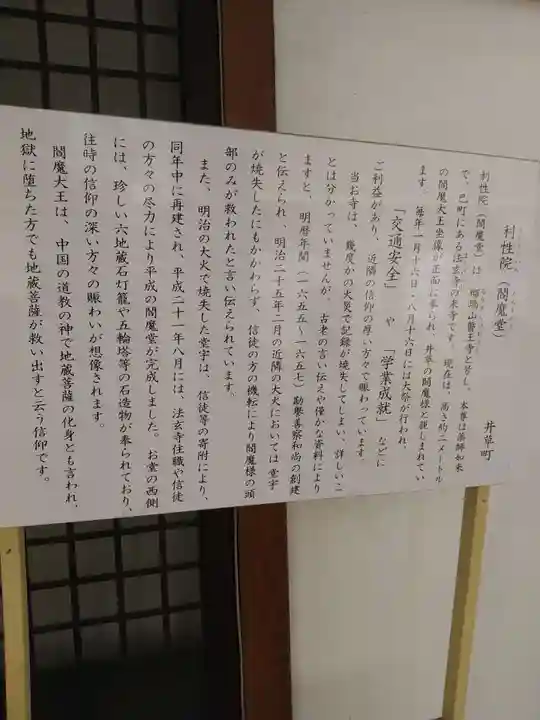 利性院(閻魔堂)
井草町
利性院(閻魔堂)は 瑠璃山醫王寺と号し、本尊は薬師如来
で、巴町にある法玄寺の末寺です。 現在は、高さ約二メートル
の閻魔大王坐像が正面に奉られ、井草の閻魔様と親しまれてい
ます。 毎年一月十六日・八月十六日には大祭が行われ、
「交通安全」 や 「学業成就」 などに
ご利益があり、近隣の信仰の厚い方々で賑わっています。
当お寺は、幾度かの火災で記録が焼失してしまい、詳しいこ
とは分かっていませんが、古老の言い伝えや僅かな資料により
ますと、明暦年間(一六五五〜一六五七)勘譽善察和尚の創建
と伝えられ、明治二十五年二月の近隣の大火においては 堂宇
が焼失したにもかかわらず、信徒の方の機転により閻魔様の頭
部のみが救われたと言い伝えられています。
また、明治の大火で焼失した堂宇は、信徒等の寄附により、
同年中に再建され、平成二十一年八月には、法玄寺住職や信徒
の方々の尽力により平成の閻魔堂が完成しました。お堂の西側
には、珍しい六地蔵石灯籠や五輪塔等の石造物が奉られており、
往時の信仰の深い方々の賑わいが想像されます。
閻魔大王は、中国の道教の神で地蔵菩薩の化身とも言われ、
地獄に堕ちた方でも地蔵菩薩が救い出すと云う信仰です。